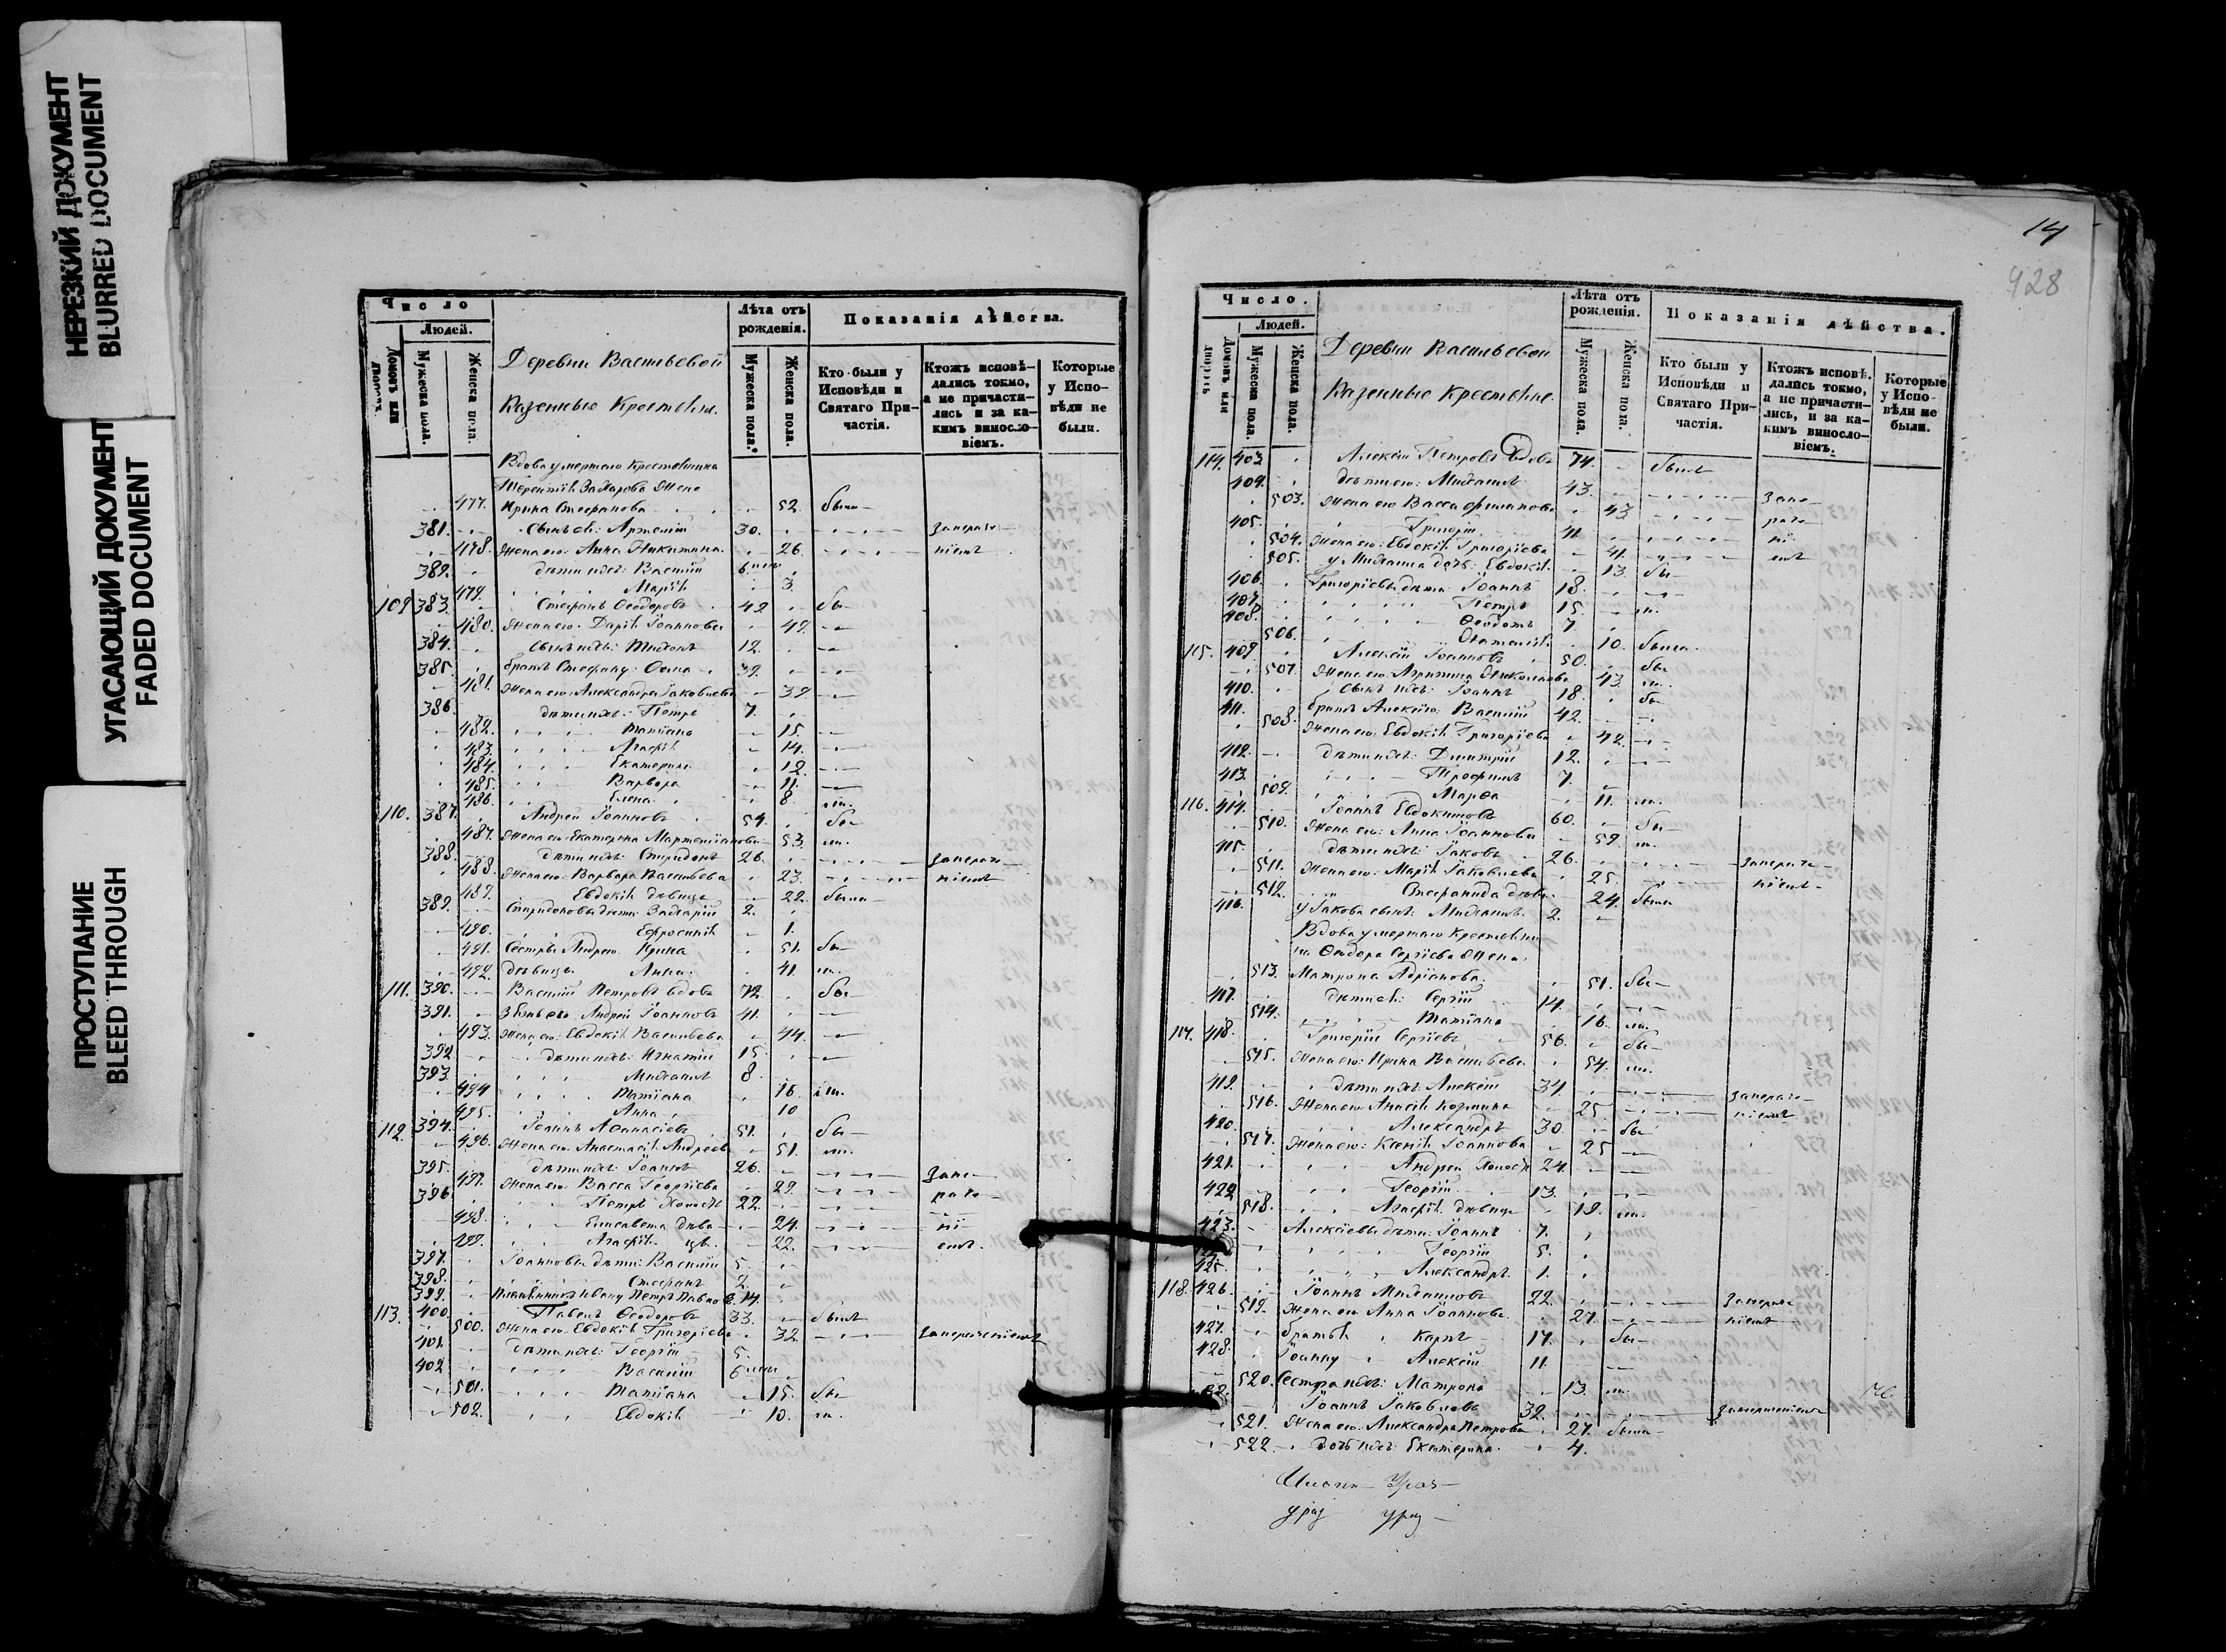 НЕРЕЗКИЙ ДОКУМЕНТ
BLURRED DOCUMENT
УГАСАЮЩИЙ ДОКУМЕНТ
FADED DOCUMENT
ПРОСТУПАНИЕ
BLEED THROUGH
Число
Людей.
Домовъ или дворовъ.
Мужеска пола.
Женска пола.
Деревни Васильевой
Казенные Крестьяне.
Лѣта отъ рожденія.
Мужеска пола.
Женска пола.
Показанія дѣйства.
Кто были у Исповѣди и Святаго Причастія.
Ктожъ исповѣдались токмо, а не причастились и за какимъ винословіемъ.
Которые у Исповѣди не были.
Вдова умершаго Крестьянина
Терентія Захарова Жена
477. Ирина Стефанова 52. была
381. Сынъ ея: Артемій 30. запреще
478. Жена его: Анна Никитина. 26. ніемъ
382. дѣти ихъ: Василій 6
479. Марія 3.
109 383. Стефанъ Ѳеодоровъ 42. бы
480. Жена его: Дарія Іоаннова 42.
384. Сынъ ихъ: Тихонъ 12.
385. братъ Стефану: Ѳома 39.
481. Жена его: Александра Іаковлева 39.
386. дѣти ихъ: Петръ 7.
482. Татіана 15.
483. Агафія 14.
484. Екатерина 12.
485. Варвара 11.
486. Елена 8. ли.
110. 387. Андрей Іоанновъ 54. бы
487. Жена его: Екатерина 53. ли.
388. дѣти ихъ: Спиридонъ 26. запреще
488. Жена его: Варвара Васильева 23. ніемъ
489. Евдокія дѣвица 22. была
389. Спиридоновы дѣти: Захарій 2.
490. Ефросинія 1.
491. Сестры Андрею Ирина 51. бы
492. дѣвицы Анна 41. ли.
111. 390. Василій Петровъ вдовъ 72. бы
391. Зять его Андрей Іоанновъ 41.
493. Жена его: Евдокія Васильева 44.
392 дѣти ихъ: Игнатій 15.
393. Михаилъ 8
494 Татіана 16. ли.
495. Анна 10
112. 394. Іоаннъ Аѳанасіевъ 51. бы
496. Жена его Анастасія Андреева 51. ли.
395. дѣти ихъ: Іоаннъ 26.
497. Жена его Васса Георгіева 29. запре
396 Петръ Холостъ 22.
498. Елисавета дѣв 24. ні
499. Агафія 22. емъ.
397. Іоанновы дѣти: Василій 5.
398. Стефанъ 2.
399. Петръ Павловъ 14.
113. 400. Павелъ Ѳеодоровъ 33. былъ
500. Жена его: Евдокія Григоріева 32. запрещеніемъ
401. дѣти ихъ: Георгій 5.
402 Василій 6
501. Татіана 15. бы
502. Евдокія 10. ли.
14
428
Число.
Людей.
Домовъ или дворовъ
Мужеска пола.
Женска пола.
Деревни Васильевой
Казенные Крестьяне.
Лѣта отъ рожденія.
Мужеска пола.
Женска пола.
Показанія дѣйства.
Кто были у Исповѣди и Святаго Причастія.
Ктожъ исповѣдались токмо, а не причастились, и за какимъ винословіемъ.
Которые у Исповѣди не были.
114. 403 Алексій Петровъ вдовъ 74. былъ
404. дѣти его: Михаилъ 43. запре
503. Жена его Васса 43
405. Григорій 41 ні
504. Жена его: Евдокія Григоріева 41. емъ
505. у Михаила дочь: Евдокія 13. бы
406. Григоріевы дѣти: Іоаннъ 18.
407. Петръ 15. ли.
408. Ѳеодотъ 7.
506. 10. была.
115. 409 Алексій Іоанновъ 50. бы
507. Жена его Агрипина 43. ли.
410. Сынъ ихъ: Іоаннъ 18. бы
411. братъ Алексію: Василій 42.
508. Жена его: Евдокія Григоріева 42.
412. дѣти ихъ: Димитрій 12.
413. Трофимъ 7.
509. Марѳа 11. ли.
116. 414. Іоаннъ Евдокимовъ 60. бы
510. Жена его: Анна Іоаннова 59. ли.
415. дѣти ихъ: Іаковъ 26. запреще
511. Жена его: Марія Іаковлева 25. ніемъ
512. Стефанида дѣв 24. была
416. у Іакова сынъ: Михаилъ 2.
Вдова умершаго Крестьяни
на Ѳеодора Сергіева Жена
513. Матрона Адріанова 51. бы
417. дѣти ея: Сергій 14.
514. Татіана 16. ли.
117. 418. Григорій Сергіевъ 56. бы
515. Жена его: Ирина Васильева 54. ли.
419. дѣти ихъ: Алексій 31. запреще
516. Жена его 25. ніемъ
420. Александръ 30. бы
517. Жена его: Ксенія Іоаннова 25
421. Андрей Холостъ 24.
422 Георгій 13.
518. Агафія дѣвица 19. ли.
423. Алексіевы дѣти: Іоаннъ 7.
Георгій 5.
425. Александръ 1.
118. 426. Іоаннъ Михаиловъ 22. запреще
519. Жена его Анна Іоаннова 27. ніемъ
427. братья Карпъ 17. бы
428. Іоанну Алексій 11.
520. Сестра ихъ: Матрона 13. ли.
Іоаннъ Іаковлевъ 32. запрещеніемъ
521. Жена его: Александра Петрова 27. была
522. дочь ихъ: Екатерина 4.